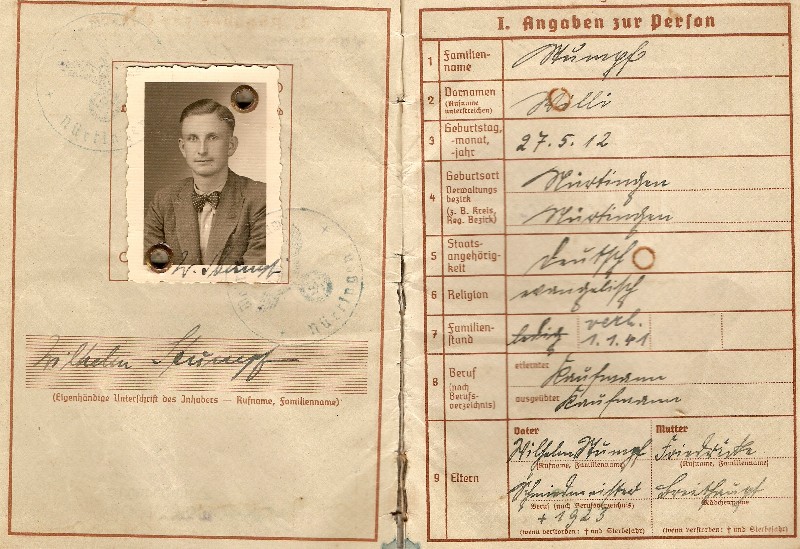 Nürtingen
W. Stumpf
Nürtingen
Wilhelm Stumpf
(Eigenhändige Unterschrift des Inhabers — Rufname, Familienname)
I. Angaben zur Person
1 Familien-
name
Stumpf
2 Vornamen
(Rufname
unterstreichen)
Willi
3 Geburtstag,
-monat,
-jahr
27.5.12
4 Geburtsort
Nürtingen
Verwaltungs
bezirk
(z. B. Kreis,
Reg. Bezirk)
Nürtingen
5 Staats-
angehörig-
keit
deutsch
6 Religion
evangelisch
7 Familien-
stand
ledig
verh.
1.1.41
8 Beruf
(nach
Berufs-
verzeichnis)
erlernter Kaufmann
ausgeübter Kaufmann
9 Eltern
Vater
Wilhelm Stumpf
(Rufname, Familienname)
Schmiedmeister
Beruf (nach Berufsverzeichnis)
+ 1923
(wenn verstorben: † und Sterbejahr)
Mutter
Friedricke
(Rufname, Familienname)
Breithaupt
Mädchenname
(wenn verstorben: † und Sterbejahr)